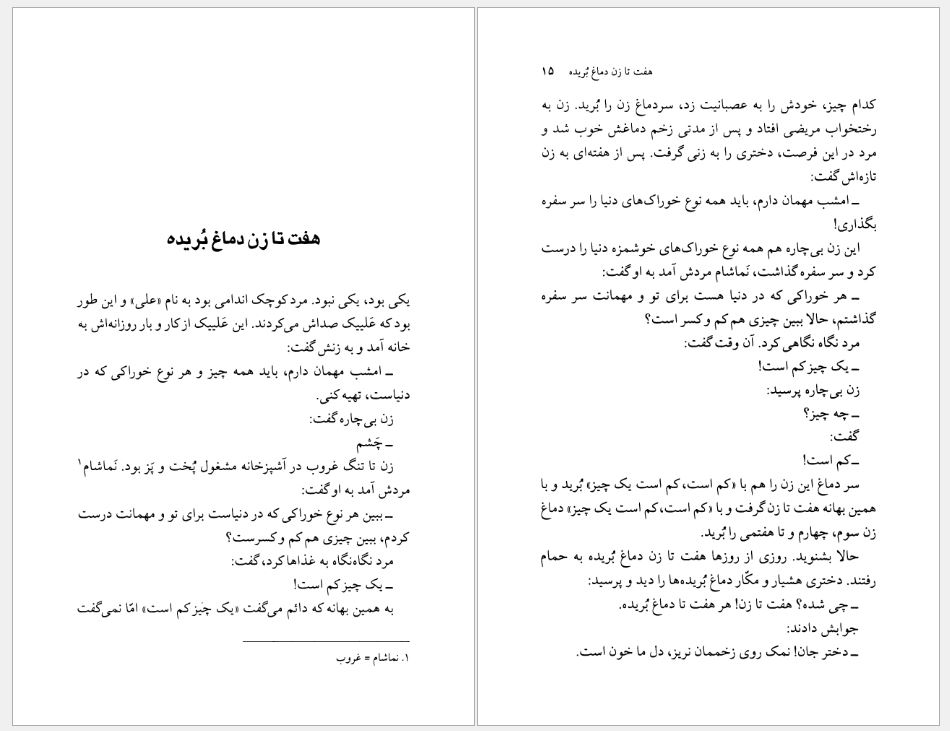 هفت تا زن دماغ بُریده
یکی بود، یکی نبود. مرد کوچک اندامی بود به نام «علی» و این طور
بود که عَلییک صداش می‌کردند. این عَلییک از کار و بار روزانه‌اش به
خانه آمد و به زنش گفت:
ــ امشب مهمان دارم، باید همه چیز و هر نوع خوراکی که در
دنیاست، تهیه کنی.
زن بی‌چاره گفت:
ــ چَشم
زن تا تنگ غروب در آشپزخانه مشغول پُخت و پَز بود. نَماشام۱
مردش آمد به او گفت:
ــ ببین هر نوع خوراکی که در دنیاست برای تو و مهمانت درست
کردم، ببین چیزی هم کم و کسرست؟
مرد نگاه‌نگاه به غذاها کرد، گفت:
ــ یک چیز کم است!
به همین بهانه که دائم می‌گفت «یک چیز کم است» امّا نمی‌گفت
۱. نماشام = غروب
هفت تا زن دماغ بُریده ۱۵
کدام چیز، خودش را به عصبانیت زد، سردماغ زن را بُرید. زن به
رختخواب مریضی افتاد و پس از مدتی زخم دماغش خوب شد و
مرد در این فرصت، دختری را به زنی گرفت. پس از هفته‌ای به زن
تازه‌اش گفت:
ــ امشب مهمان دارم، باید همه نوع خوراک‌های دنیا را سر سفره
بگذاری!
این زن بی‌چاره هم همه نوع خوراک‌های خوشمزه دنیا را درست
کرد و سر سفره گذاشت، نَماشام مردش آمد به او گفت:
ــ هر خوراکی که در دنیا هست برای تو و مهمانت سر سفره
گذاشتم، حالا ببین چیزی هم کم و کسر است؟
مرد نگاه نگاهی کرد. آن وقت گفت:
ــ یک چیز کم است!
زن بی‌چاره پرسید:
ــ چه چیز؟
گفت:
ــ کم است!
سر دماغ این زن را هم با «کم است، کم است یک چیز» بُرید و با
همین بهانه هفت تا زن گرفت و با «کم است، کم است یک چیز» دماغ
زن سوم، چهارم و تا هفتمی را بُرید.
حالا بشنوید. روزی از روزها هفت تا زن دماغ بُریده به حمام
رفتند. دختری هشیار و مکّار دماغ بُریده‌ها را دید و پرسید:
ــ چی شده؟ هفت تا زن! هر هفت تا دماغ بُریده.
جوابش دادند:
ــ دختر جان! نمک روی زخممان نریز، دل ما خون است.